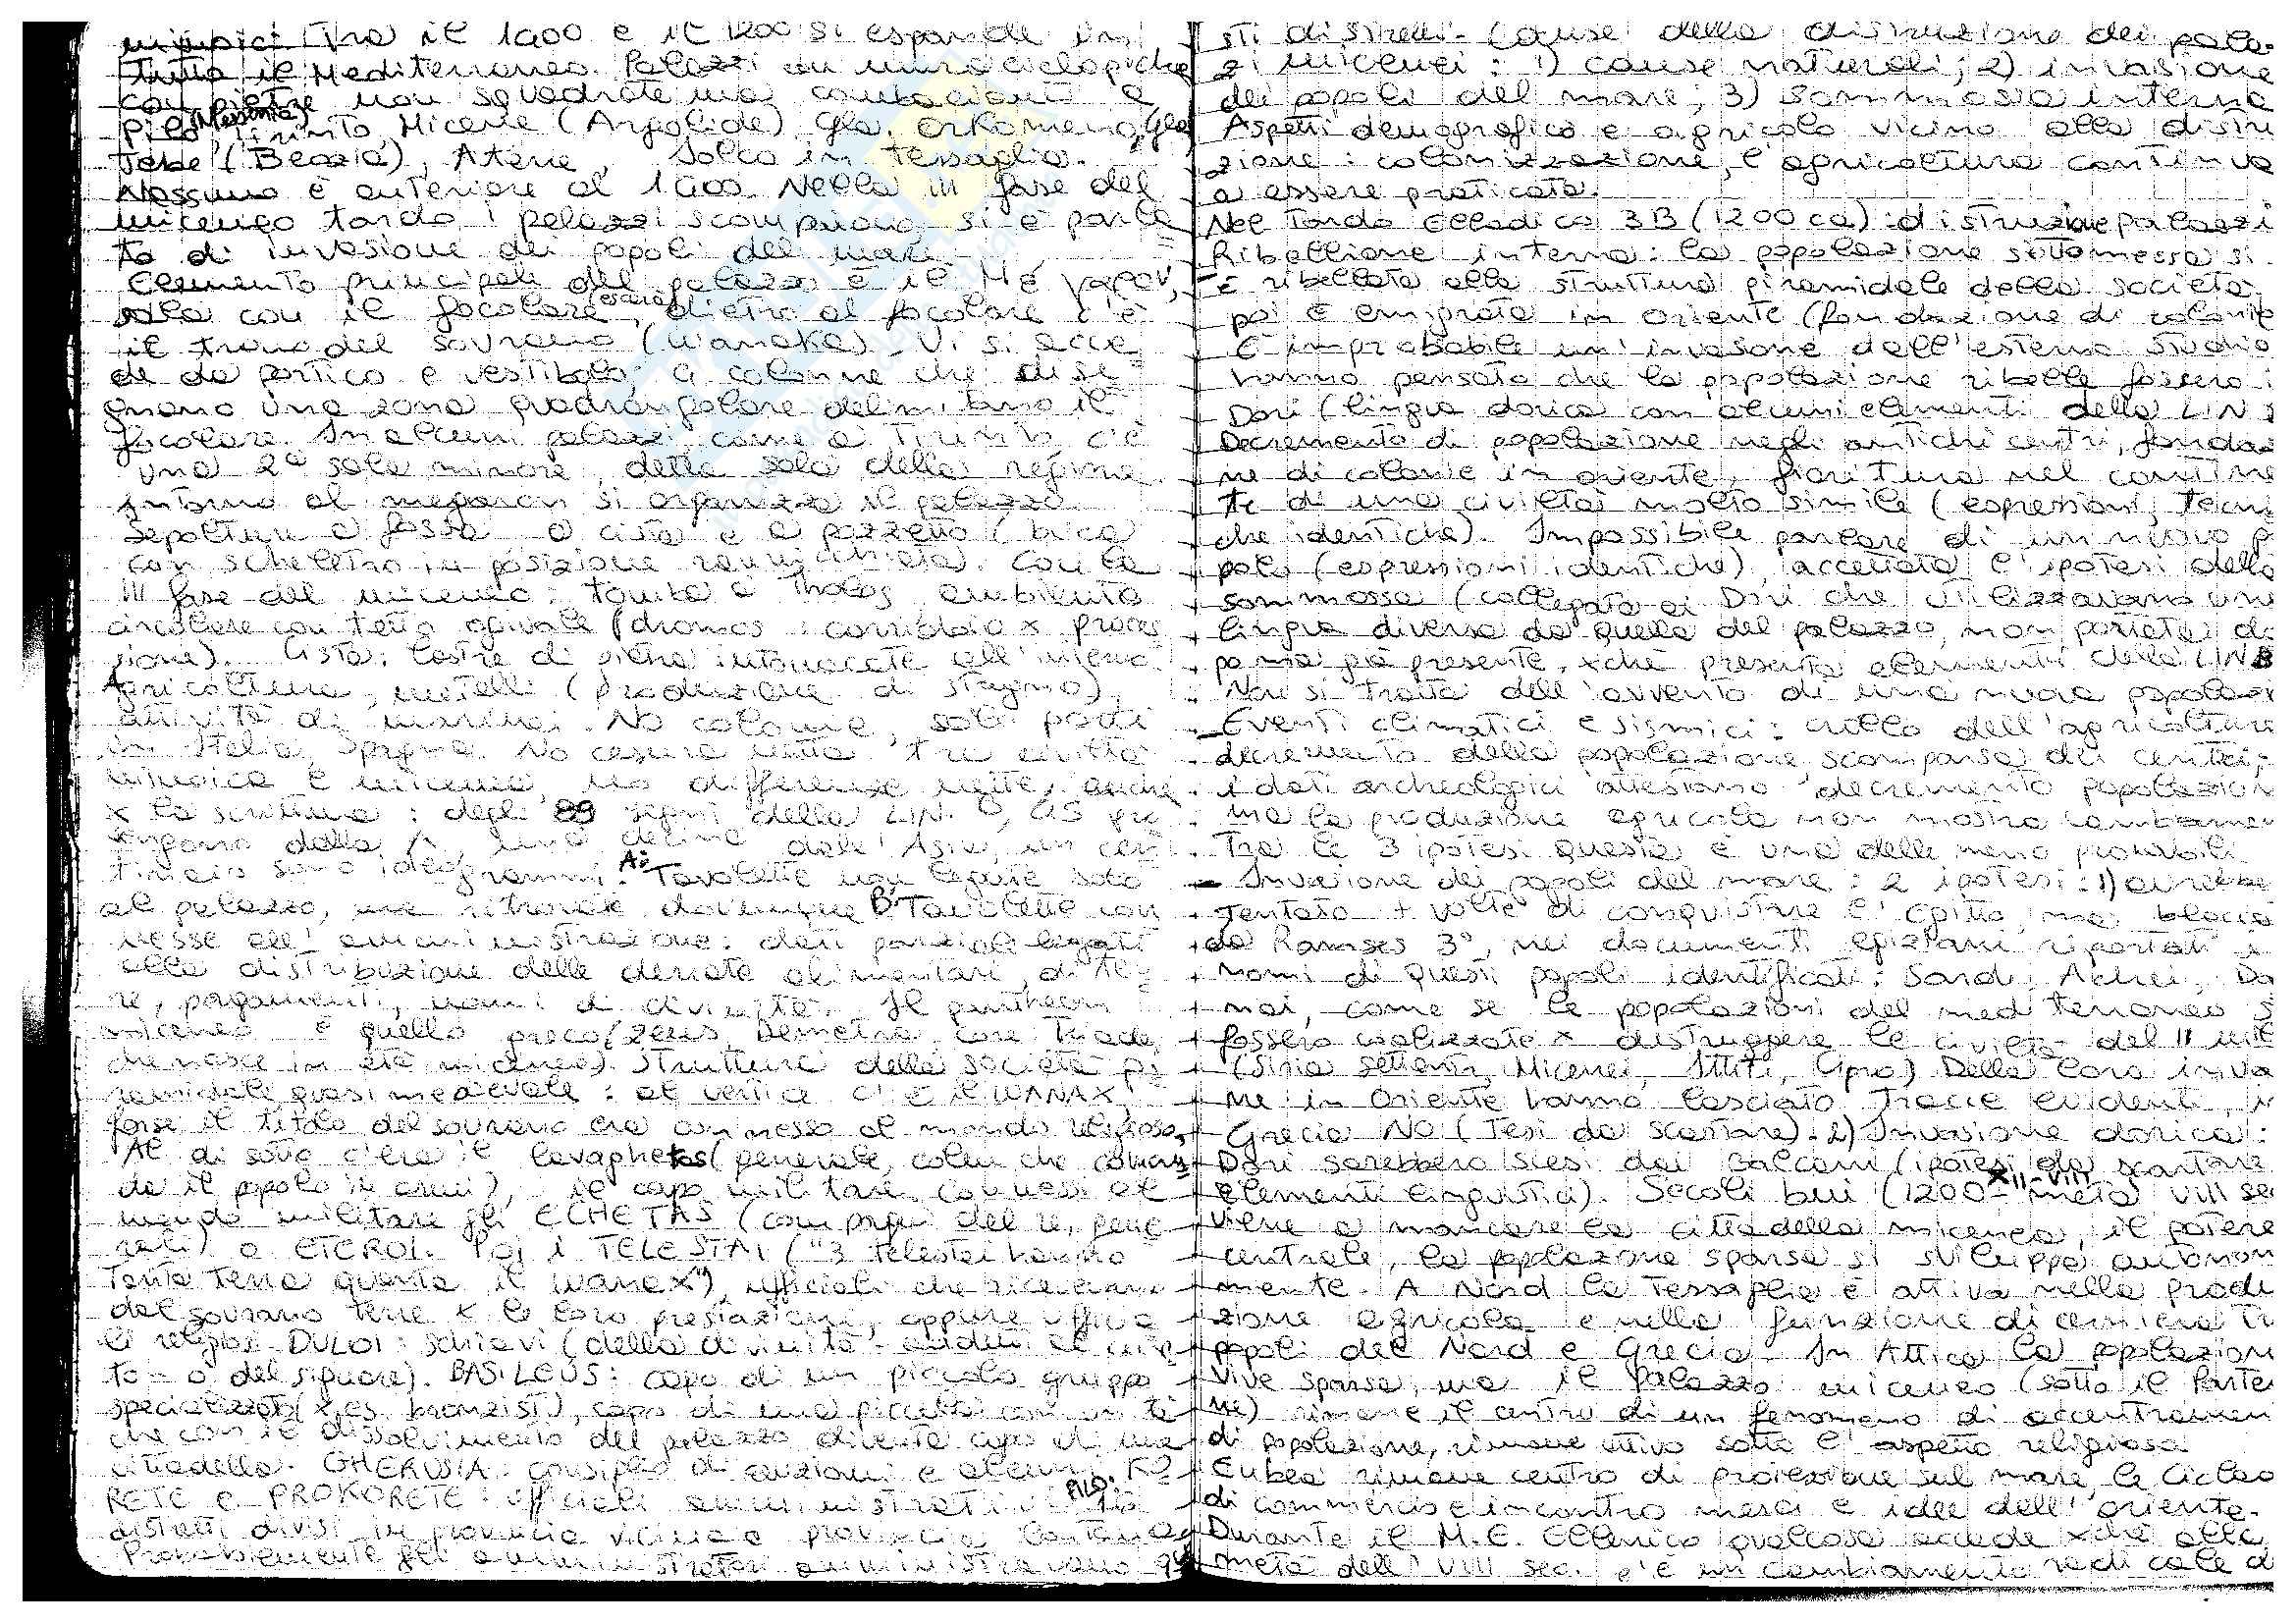 minoici. Tra il 1400 e il 1200 si espande in
tutto il Mediterraneo. Palazzi con mura ciclopiche
con pietre non squadrate ma combacianti a
Pilo (Messenia), Tirinto, Micene (Argolide), Gla, Orkomeno, Gla
Tebe (Beozia), Atene, Iolco in Tessaglia.
Nessuno è anteriore al 1400. Nella III fase del
miceneo tardo i palazzi scompaiono, si è parla
to di invasione dei popoli del mare.
Elemento principale del palazzo è il Μέγαρον,
sala con il focolare (escara), dietro al focolare c'è
il trono del sovrano (Wanaka). Vi si acce
de da portico e vestibolo; 4 colonne che dise
gnano una zona quadrangolare delimitano il
focolare. In alcuni palazzi come a Tirinto c'è
una 2ª sala minore, detta sala della regina.
Intorno al megaron si organizza il palazzo.
Sepolture a fossa o cista e a pozzetto (buca
con scheletro in posizione rannicchiata). Con la
III fase del miceneo: tomba a Tholos, ambiente
circolare con tetto ogivale (dromos: corridoio x proces
sione). Cista: lastre di pietra intonacate all'interno.
Agricoltura, metalli (produzione di stagno),
attività di marinai. No colonie, solo porti
in Italia, Spagna. No cesura netta tra civiltà
minoica e micenea, no differenze nette, anche
x la scrittura: degli 89 segni della LIN. B, 45 pro
vengono dalla A, una decina dall'Asia, un cen
tinaio sono ideogrammi. A: Tavolette non legate solo
al palazzo, ma ritrovate dovunque B: Tavolette con
nesse all'amministrazione: dati parziali legati
alla distribuzione delle derrate alimentari, di
re, pagamenti, nomi di divinità. Il pantheon
miceneo è quello greco (Zeus, Demetra, Core Triade,
che nasce in età micenea). Struttura della società pi
ramidale quasi medievale: al vertice c'è il WANAX,
forse il titolo del sovrano era connesso al mondo religioso.
Al di sotto c'era il lavaghetas (generale, colui che coman
da il popolo in armi), il capo militare. Connessi al
mondo militare gli ECHETAS (compagni del re, gene
rali) o ETEROI. Poi i TELESTAI ("3 telestai hanno
tanta terra quanta il wanax"), ufficiali che ricevevano
dal sovrano terre x le loro prestazioni, oppure ufficia
li religiosi. DULOI: schiavi (della divinità - addetti al cul
to - o del signore). BASILEUS: capo di un piccolo gruppo
specializzato (x es. bronzisti), capo di una piccola comunità
che con il dissolvimento del palazzo diventa capo di una
cittadella. GHERUSIA: consiglio di anziani e alcuni KO
RETE e PROKORETE: ufficiali amministrativi. PILO:
distretti divisi in provincia vicina e provincia lontana
Probabilmente gli amministratori amministravano que
sti distretti. Cause della distruzione dei palaz
zi micenei: 1) cause naturali; 2) invasione
dei popoli del mare; 3) sommossa interna
Aspetti demografico e agricolo vicino alla distru
zione: colonizzazione, l'agricoltura continua
a essere praticata.
Nel Tardo Elladico 3B (1200 ca): distruzione palazzi
Ribellione interna: la popolazione sottomessa si
è ribellata alla struttura piramidale della società,
poi è emigrata in oriente (fondazione di colonie
È improbabile un'invasione dall'esterno. Studio
hanno pensato che la popolazione ribelle fossero i
Dori (lingua dorica con alcuni elementi della LIN B
Decremento di popolazione negli antichi centri, fondazio
ne di colonie in oriente, fioritura nel contine
te di una civiltà molto simile (espressioni, tecni
che identiche). Impossibile parlare di un nuovo p
polo (espressioni identiche), accettata l'ipotesi della
sommossa (collegata ai Dori che utilizzavano una
lingua diversa da quella del palazzo, non portata da
ma già presente, xchè presenta elementi della LIN B
Non si tratta dell'avvento di una nuova popolaz
- Eventi climatici e sismici: crollo dell'agricoltura
decremento della popolazione, scomparsa dei centri;
i dati archeologici attestano decremento popolazion
ma la produzione agricola non mostra cambiamen
Tra le 3 ipotesi questa è una delle meno probabili
- Invasione dei popoli del mare: 2 ipotesi: 1) avrebbe
tentato + volte di conquistare l'Egitto, ma blocca
da Ramses 3°, nei documenti egiziani riportati i
nomi di questi popoli identificati: Sardi, Achei, Da
nai, come se le popolazioni del mediterraneo s
fossero coalizzate x distruggere le civiltà del II mill
(Siria settentr, Micenei, Ittiti, Cipro). Della loro inva
ne in Oriente hanno lasciato tracce evidenti, in
Grecia NO (Tesi da scartare). 2) Invasione dorica:
Dori sarebbero scesi dai Balcani (ipotesi da scartare
elementi linguistici). Secoli bui (1200 - metà VIII se XII-VIII
viene a mancare la cittadella micenea, il potere
centrale, la popolazione sparsa si sviluppa autonom
mente. A Nord la Tessaglia è attiva nella produ
zione agricola e nella funzione di cerniera tr
popoli del Nord e Grecia. In Attica la popolazion
vive sparsa, ma il palazzo miceneo (sotto il Parte
ne) rimane il centro di un fenomeno di accentramen
di popolazione, rimane attivo sotto l'aspetto religioso
Eubea rimane centro di proiezione sul mare, le Cicladi
di commercio e incontro merci e idee dell'oriente.
Durante il M.E. Ellenico qualcosa accade xchè alla
metà dell'VIII sec. c'è un cambiamento radicale d